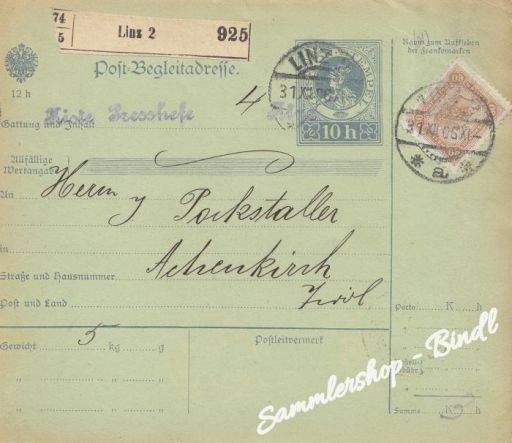 74
5
Linz 2
925
Post-Begleitadresse.
Raum zum Aufkleben
der Frankomarken
12 h
LINZ
31.XII.06
10 h
60
Gattung und Inhalt
Kiste Presshefe
4
Allfällige
Wertangabe
An
Herrn J Pockstaller
in
Achenkirch
Straße und Hausnummer
Tirol
Post und Land
Porto K h
Gewicht 5 kg g
Postleitvermerk
" " "
" " "
Summe K h
Sammlershop - Bindl